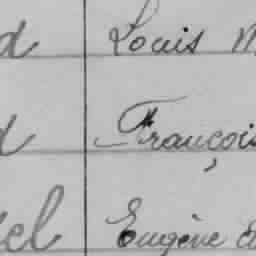 d Louis
d François
el Eugène